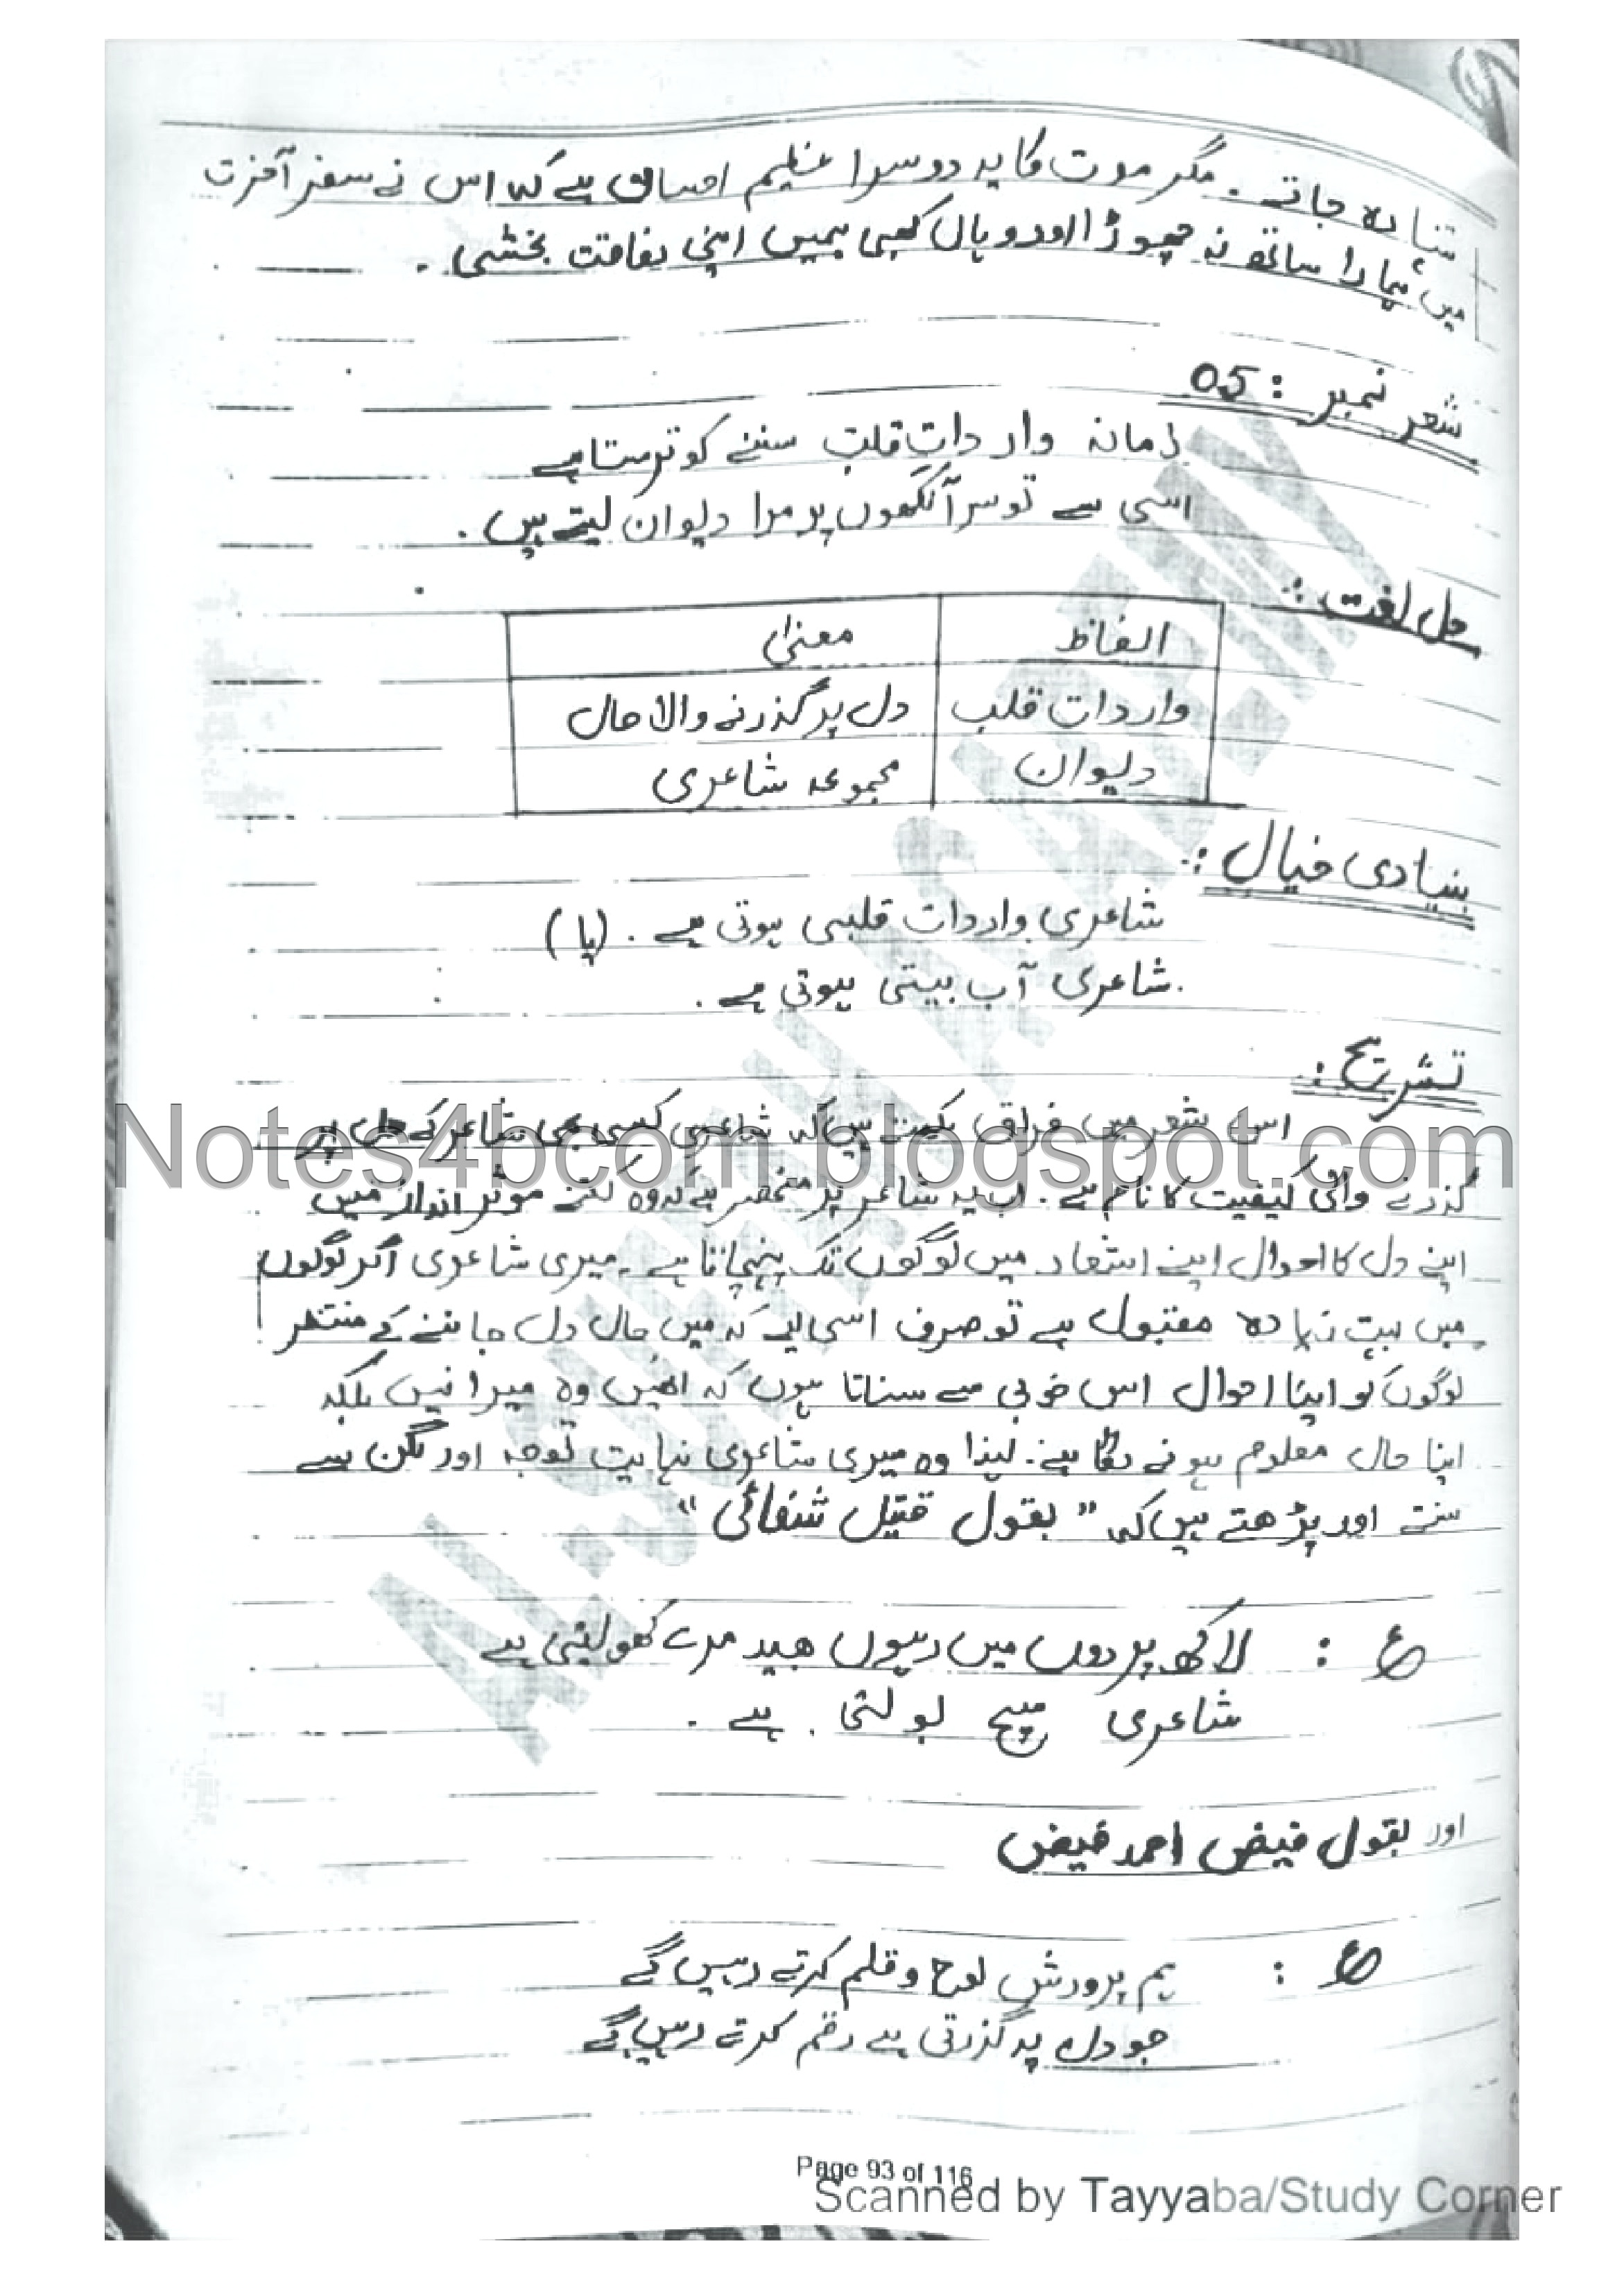 تنہا رہ جاتے۔ مگر موت کا یہ دوسرا عظیم احسان ہے کہ اس نے سفر آخرت
میں ہمارا ساتھ نہ چھوڑا اور وہاں بھی ہمیں اپنی رفاقت بخشی۔
شعر نمبر : 05
زمانہ وارداتِ قلب سننے کو ترستا ہے
اسی سے تو سر آنکھوں پر مرا دیوان لیتے ہیں۔
حل لغت :
الفاظ معنی
واردات قلب دل پر گذرنے والا حال
دیوان مجموعہ شاعری
بنیادی خیال :
شاعری واردات قلبی ہوتی ہے۔ (یا)
شاعری آپ بیتی ہوتی ہے۔
تشریح :
اس شعر میں فراق کہتے ہیں کہ شاعری کسی بھی شاعر کے دل پر
گزرنے والی کیفیت کا نام ہے۔ اب یہ شاعر پر منحصر ہے کہ وہ کتنے موثر انداز میں
اپنے دل کا احوال اپنے اشعار میں لوگوں تک پہنچاتا ہے۔ میری شاعری اگر لوگوں
میں بہت زیادہ مقبول ہے تو صرف اسی لیے کہ میں حال دل جاننے کے منتظر
لوگوں کو اپنا احوال اس خوبی سے سناتا ہوں کہ انھیں وہ میرا نہیں بلکہ
اپنا حال معلوم ہونے لگتا ہے۔ لہٰذا وہ میری شاعری نہایت توجہ اور لگن سے
سنتے اور پڑھتے ہیں کہ "بقول قتیل شفائی"
ع : لاکھ پردوں میں رہوں بھید مرے کھولتی ہے
شاعری سچ بولتی ہے۔
اور بقول فیض احمد فیض
ع : ہم پرورش لوح و قلم کرتے رہیں گے
جو دل پہ گزرتی ہے رقم کرتے رہیں گے
AL-SUBHA SALEM
Notes4bcom.blogspot.com
Page 93 of 116
Scanned by Tayyaba/Study Corner